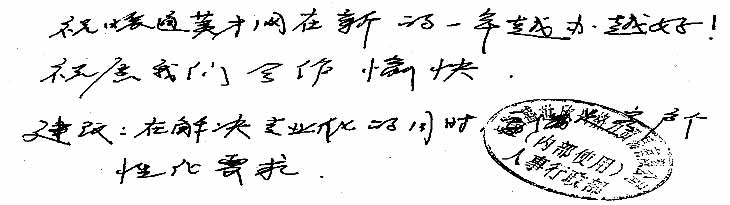 祝暖通英才网在新的一年越办越好!
祝愿我们合作愉快.
建议:在解决专业化的同时,客户个
性化要求.
(内部使用)
人事行政部